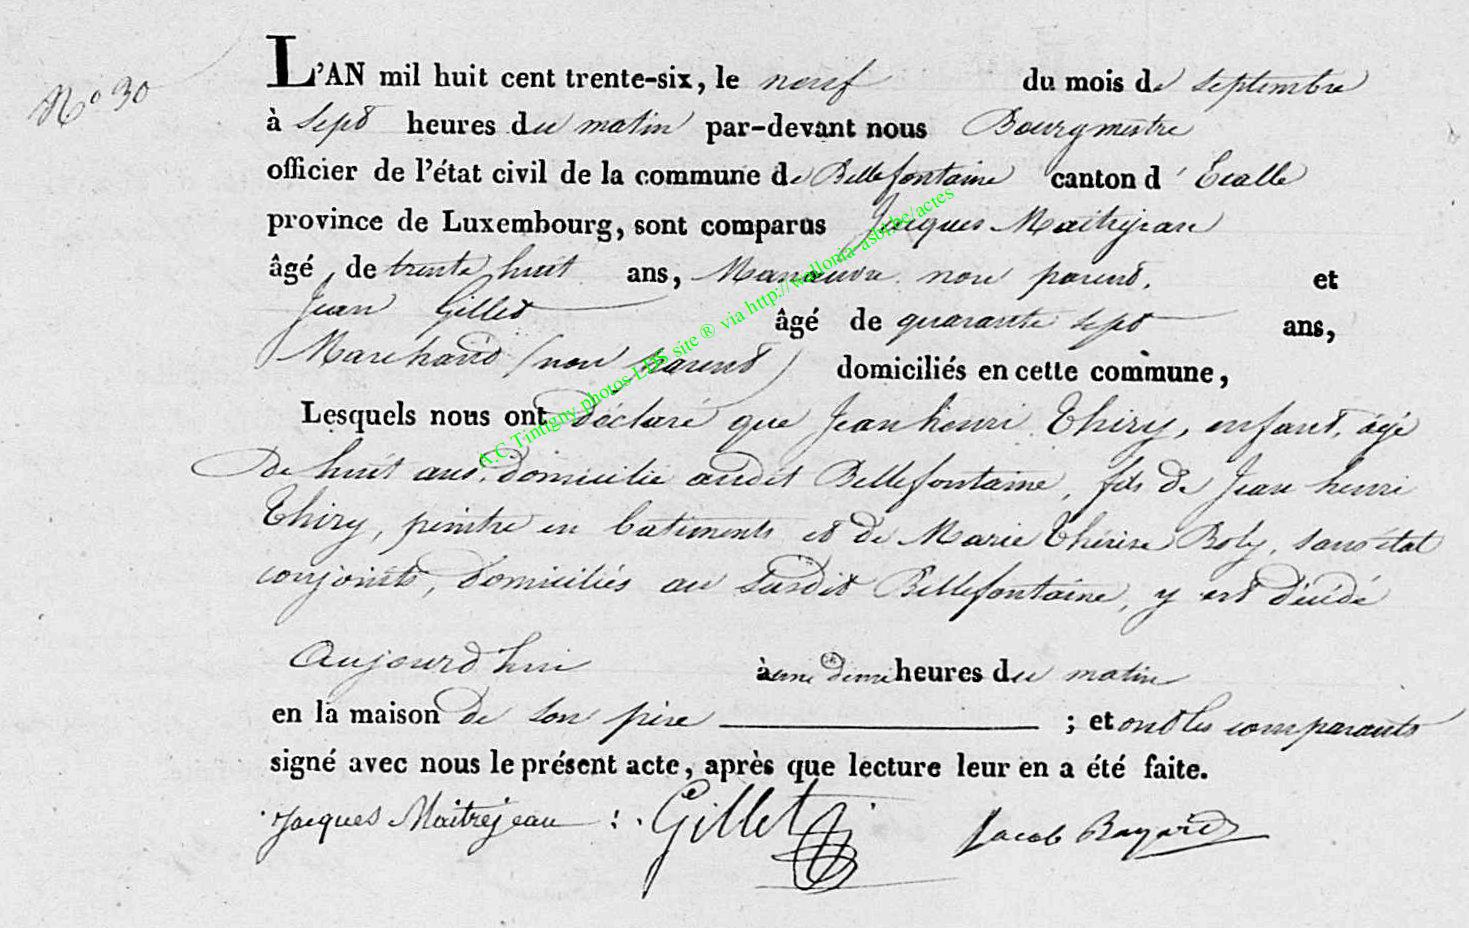 N.o 30
L'AN mil huit cent trente-six, le neuf du mois de septembre
à sept heures du matin par-devant nous Bourgmestre
officier de l'état civil de la commune de Bellefontaine canton d' Etalle
province de Luxembourg, sont comparus Jacques Maitrejean
âgé de trente huit ans, Manœuvre non parent. et
Jean Gillet âgé de quarante sept ans,
Marchand (non parent) domiciliés en cette commune,
Lesquels nous ont déclaré que Jean henri Thiry, enfant, âgé
de huit ans, domicilié audit Bellefontaine, fils de Jean henri
Thiry, peintre en batiments et de Marie Thérèse Boly, sans état
conjoints, domiciliés au susdit Bellefontaine, y est décédé
Aujourd'hui à une demi heures du matin
en la maison de son père ; et ont les comparants
signé avec nous le présent acte, après que lecture leur en a été faite.
Jacques Maitrejean Gillet Jacob Bayard
A.C Tintigny photos LDS site ® via http://wallonia-asbl.be/actes